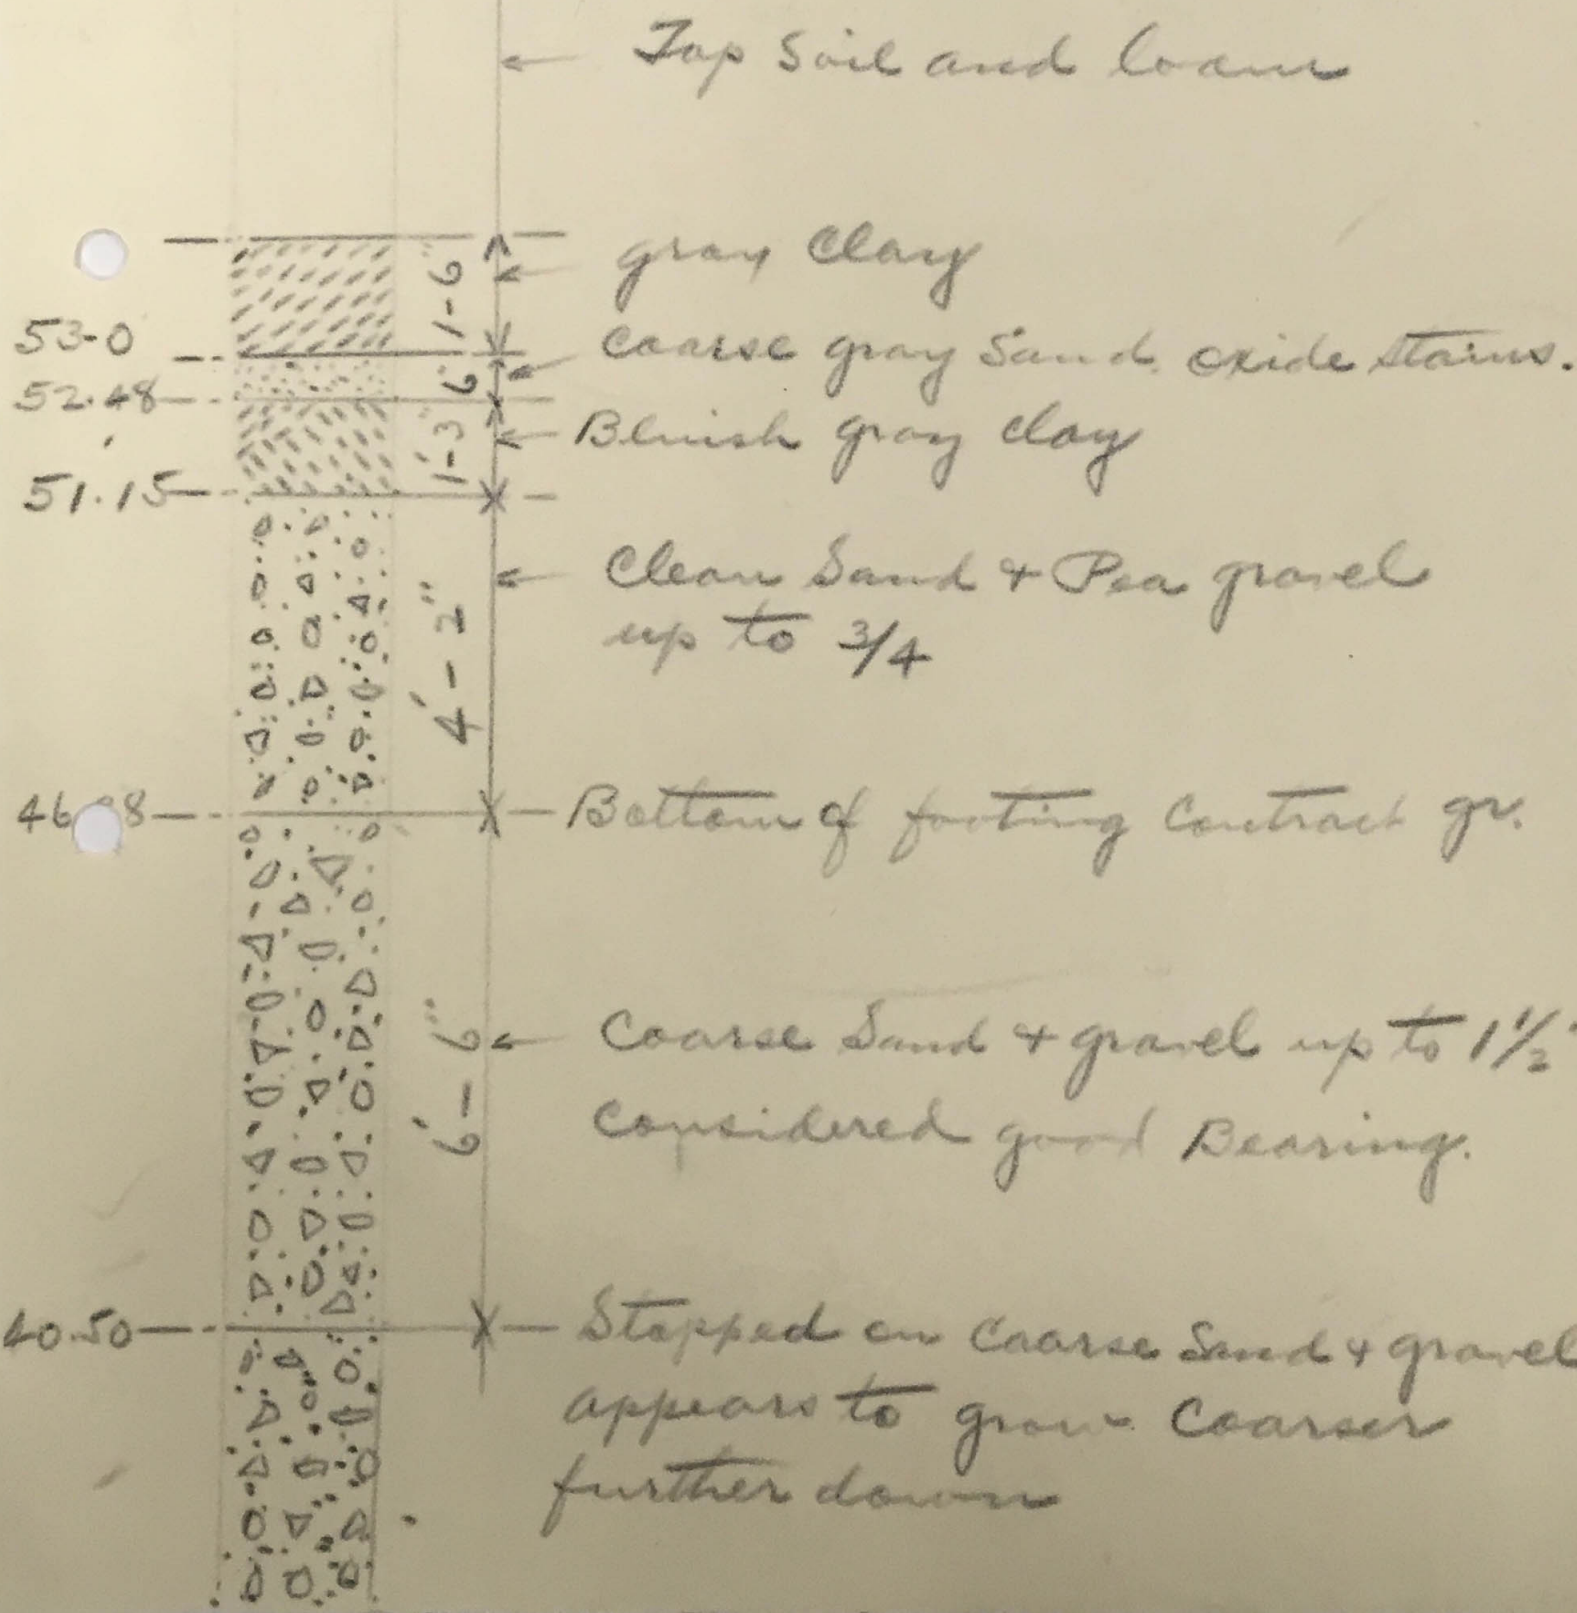 Top Soil and loam
gray Clay
1'-6"
53-0
Coarse gray Sand. oxide stains.
6"
52.48
Bluish gray clay
1'-3"
51.15
Clean Sand + Pea gravel
up to 3/4
4'-2"
Bottom of footing Contract gr.
Coarse Sand + gravel up to 1 1/2"
6'-6"
Considered good Bearing.
40.50
Stopped on Coarse Sand + gravel
appears to grow Coarser
further down